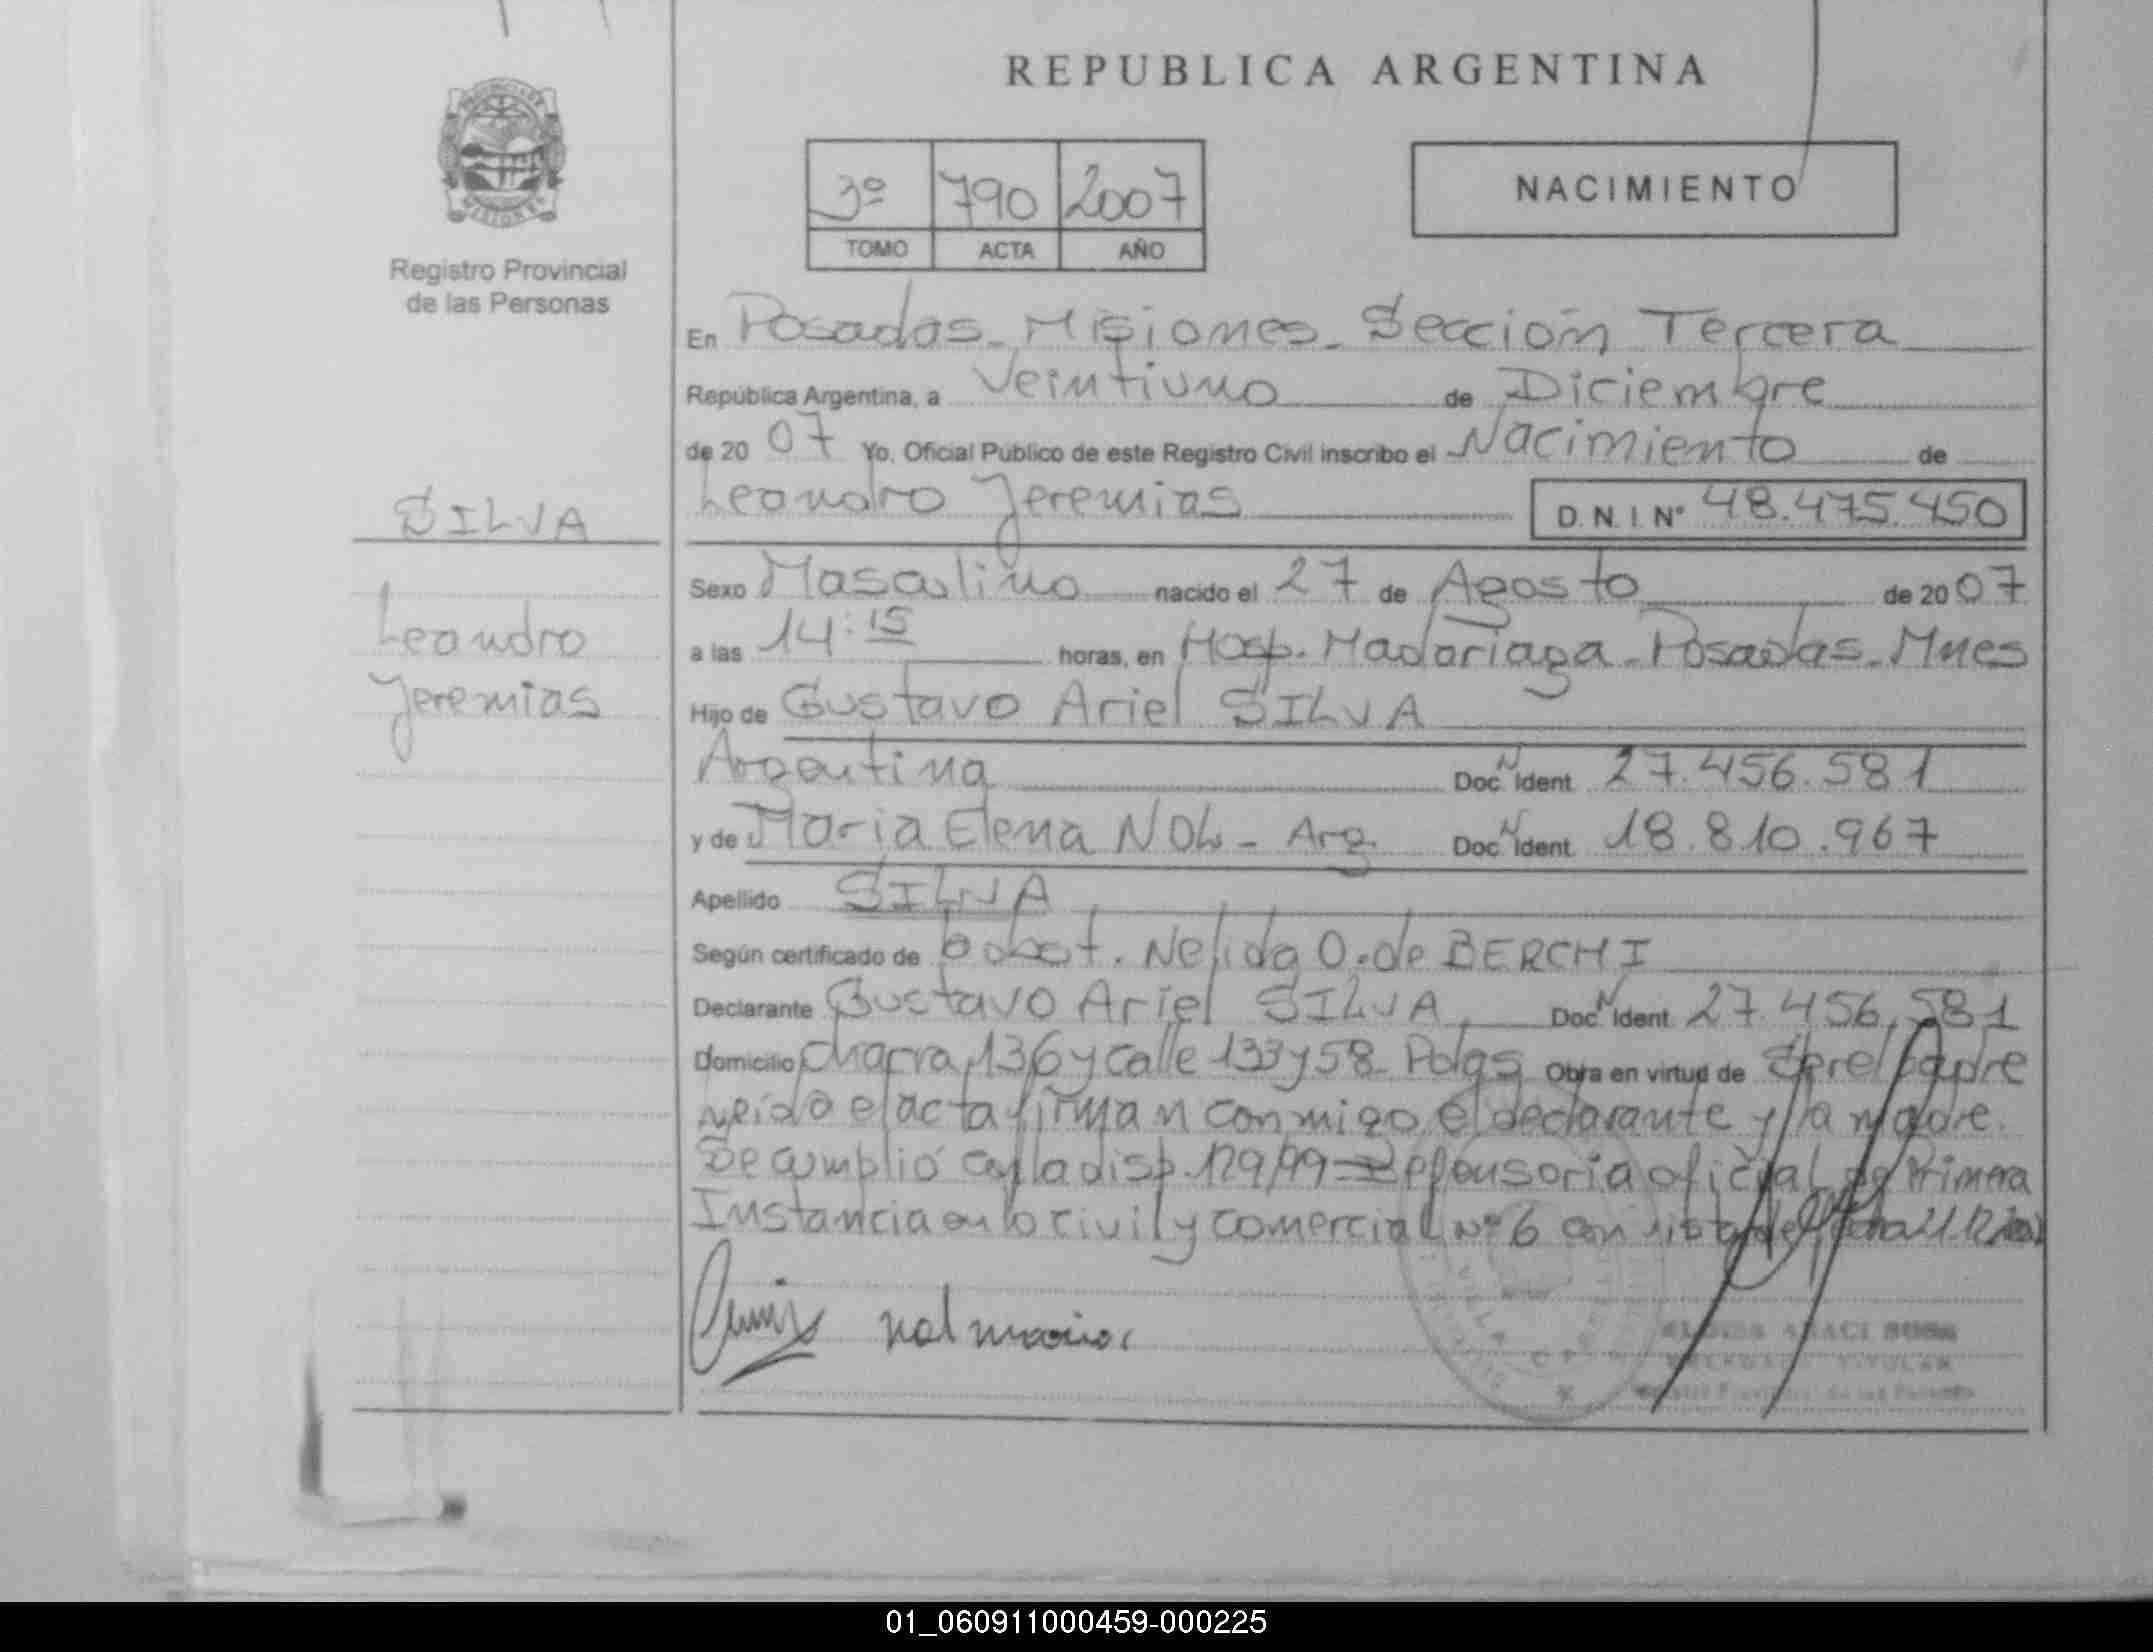 REPUBLICA ARGENTINA
PROVINCIA DE
MISIONES
Registro Provincial
de las Personas
3º 790 2007
TOMO ACTA AÑO
NACIMIENTO
En Posadas - Misiones - Sección Tercera
República Argentina, a Veintiuno de Diciembre
de 20 07 Yo, Oficial Público de este Registro Civil inscribo el Nacimiento de
Leandro Jeremias D.N.I. Nº 48.475.450
SILVA
Leandro
Jeremias
Sexo Masculino nacido el 27 de Agosto de 20 07
a las 14:15 horas, en Hosp. Madariaga - Posadas - Mnes
Hijo de Gustavo Ariel SILVA
Argentina Doc. N Ident. 27.456.581
y de Maria Elena NOL - Arg. Doc. N Ident. 18.810.967
Apellido SILVA
Según certificado de obst. Nelida O. de BERCHI
Declarante Gustavo Ariel SILVA, Doc. N Ident. 27.456.581
Domicilio Chacra 136 y calle 133 y 58 - Pdas Obra en virtud de Ser el padre
Leida el acta firman conmigo el declarante y la madre.
Se cumplió con la disp. 129/99 = Defensoria oficial de Primera
Instancia en lo civil y comercial Nº 6 con vista de fecha 21.12
nol maria
ARACI SOSA
TITULAR
Registro Provincial de las Personas
01_060911000459-000225